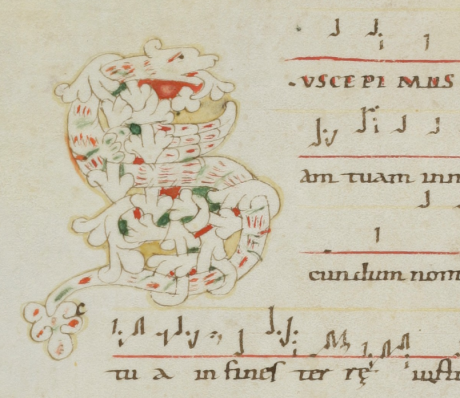 SUSCEPIMUS
am tuam inm
cundum nom
tu a in fines ter rę iusti